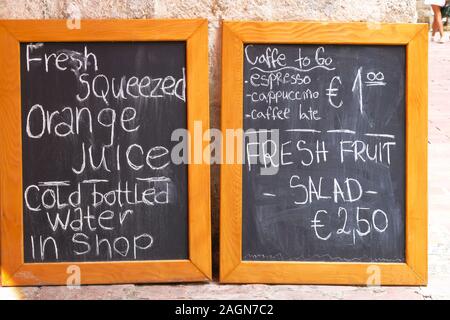 Fresh
Squeezed
Orange
Juice
Cold bottled
Water
In Shop
Caffe to Go
-espresso
-cappuccino
-caffee latte
€ 1.00
FRESH FRUIT
- SALAD -
€ 2,50
alamy
Image ID: 2AGN7C2
www.alamy.com